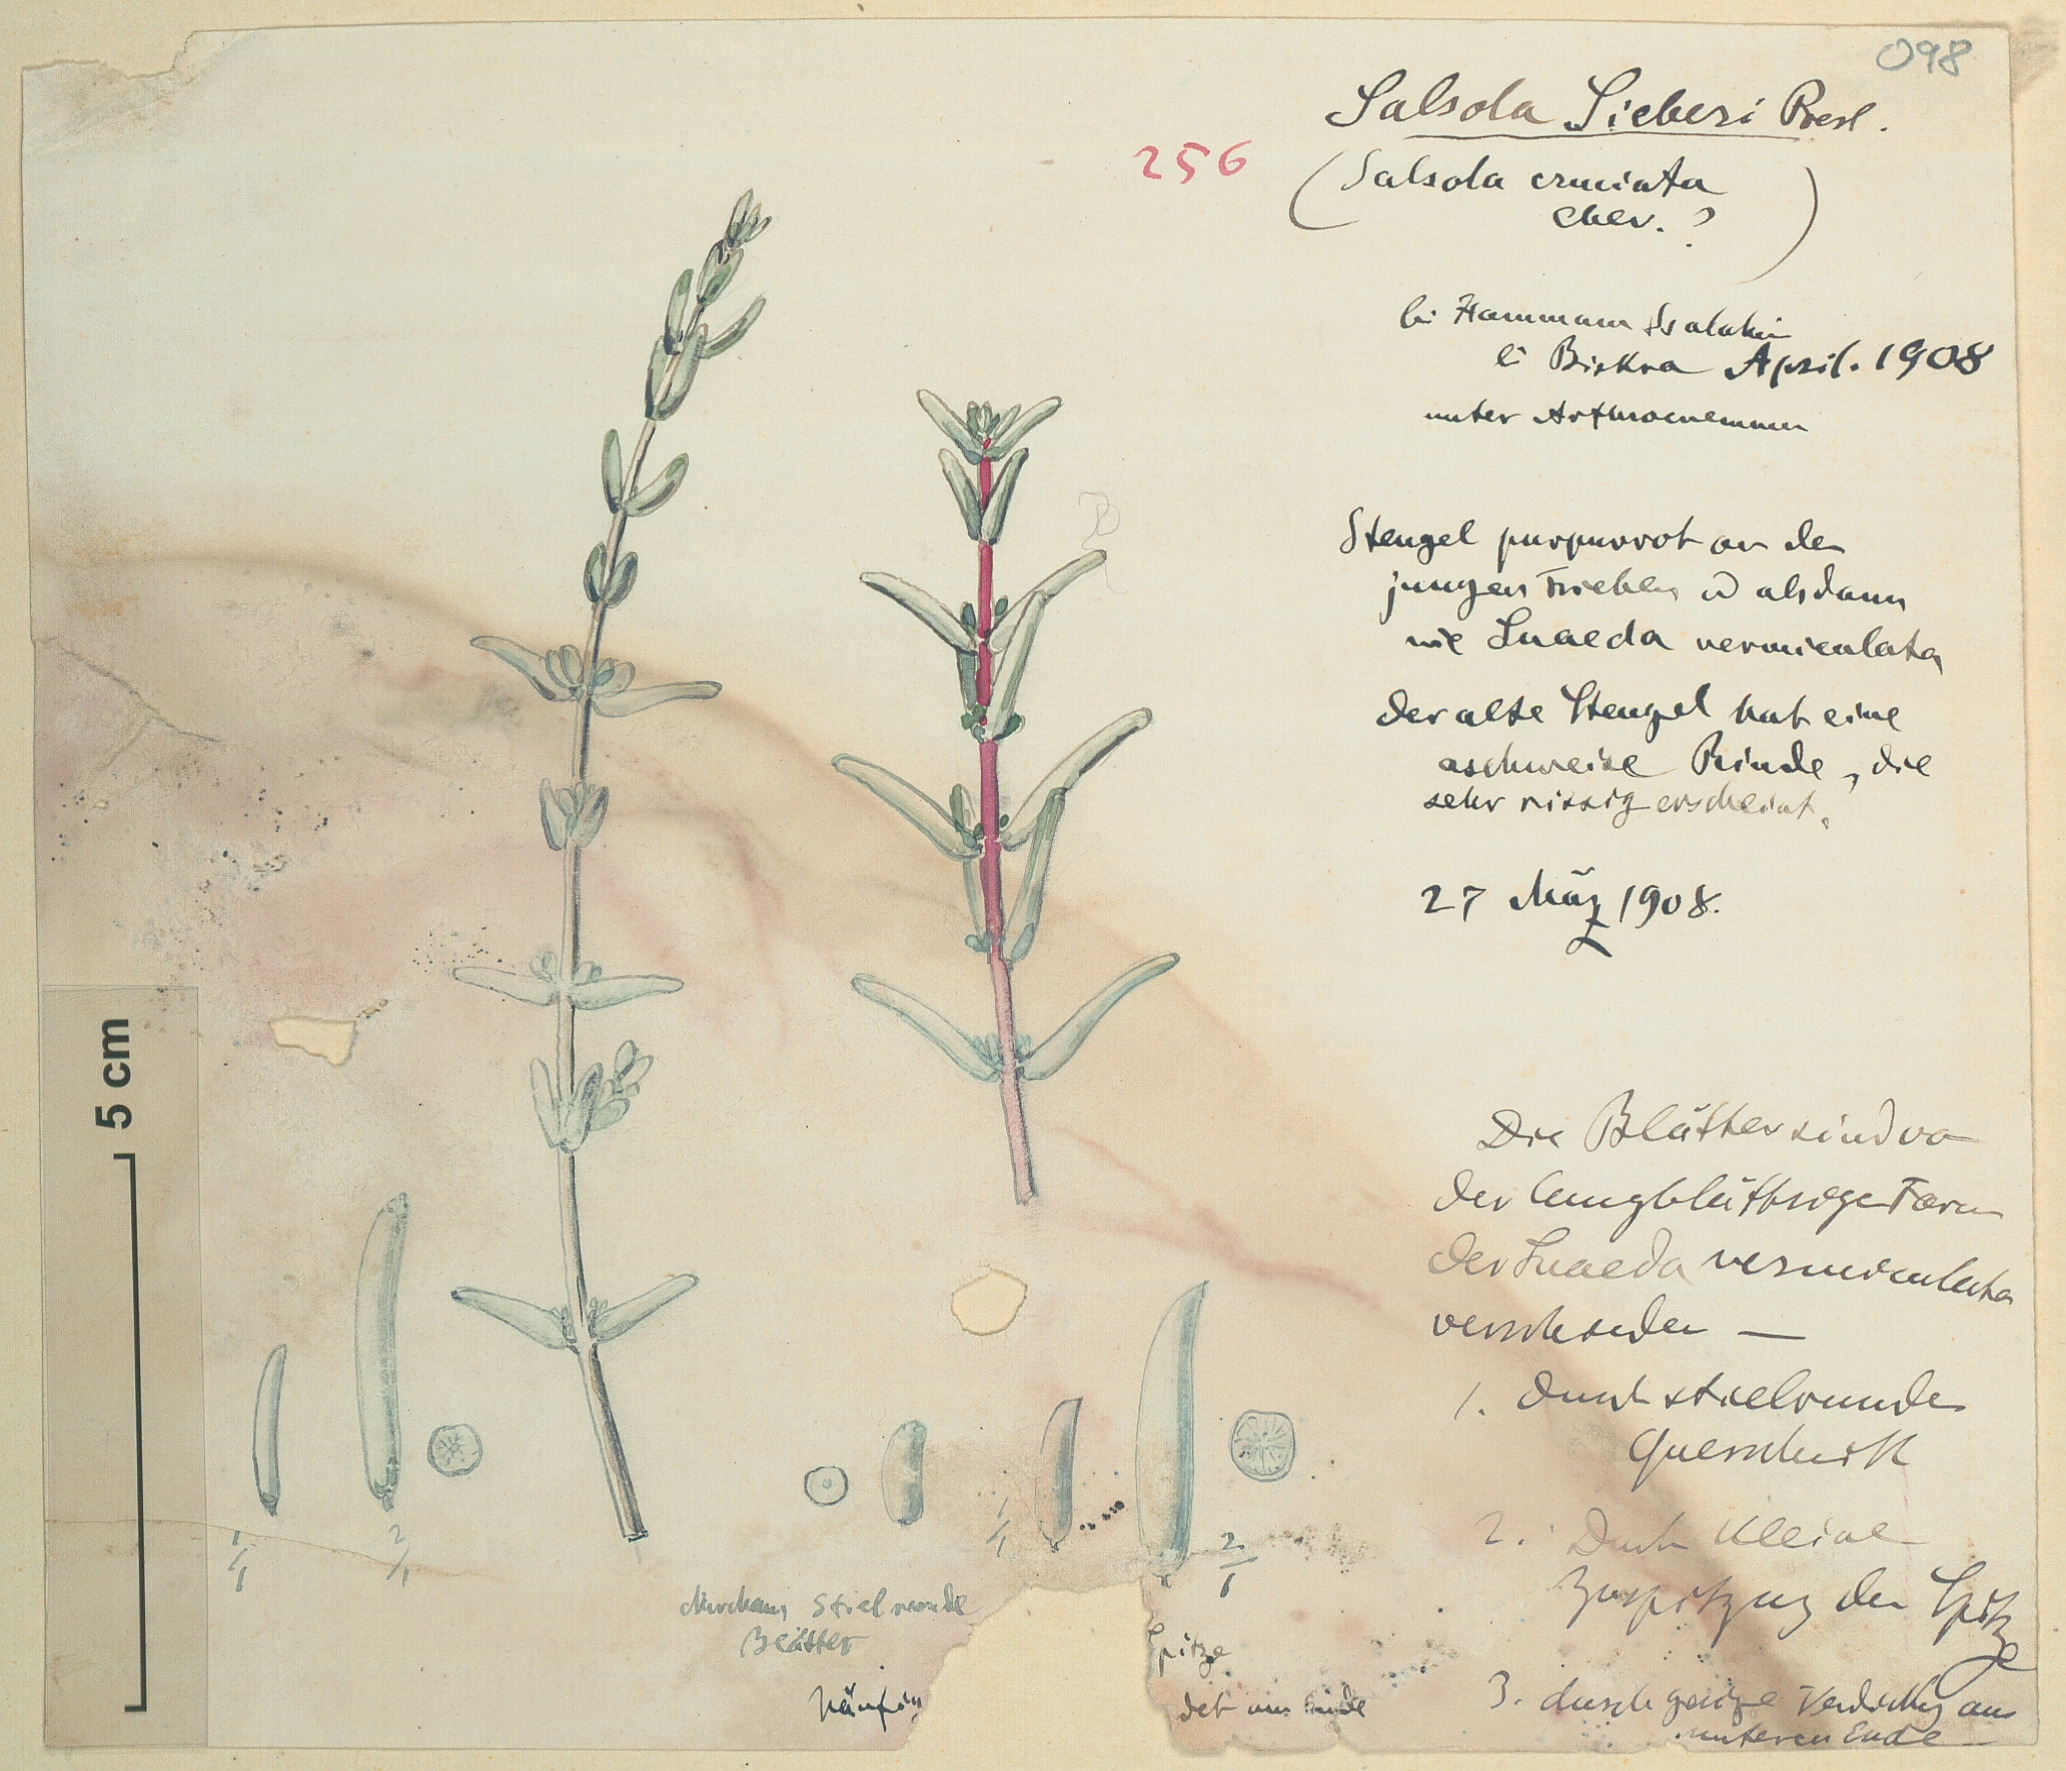 098
Salsola Sieberi Presl.
256
(Salsola cruciata
chev. ?)
bei Hammam Ssalahin
bei Biskra April. 1908
unter Arthrocnemum
Stengel purpurrot an den
jungen Trieben u alsdann
wie Suaeda vermiculata
der alte Stengel hat eine
aschweise Rinde, die
sehr rissig erscheint.
27 März 1908.
Die Blätter sind von
der langblättrige Form
der Suaeda vermiculata
verschieden —
1. durch stielrunden
Querschnitt
2. Durch kleine
Zuspitzung der Spitze
3. durch geringe Verdickung am
unteren Ende
5 cm
1/1
2/1
1/1
2/1
durchaus stielrunde
Blätter
häufig
Spitze
det am Ende